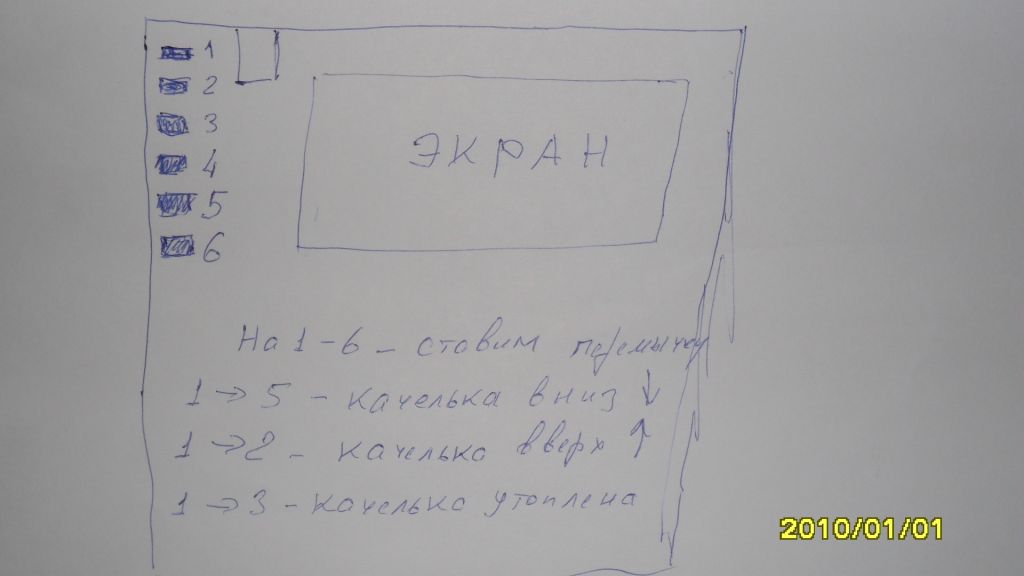 1
2
3
4
5
6
ЭКРАН
На 1-6 - ставим перемычку
1 → 5 - качелька вниз ↓
1 → 2 - качелька вверх ↑
1 → 3 - качелька утоплена
2010/01/01